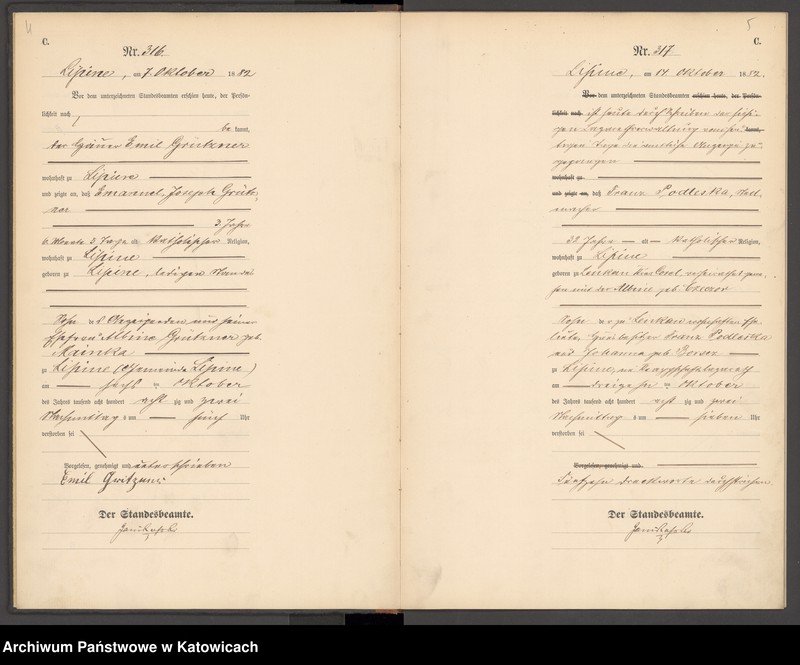 C.
Nr. 316
Lipine, am 7. Oktober 1882
Vor dem unterzeichneten Standesbeamten erschien heute, der Persön-
lichkeit nach
be kannt,
der Häuer Emil Grützner
wohnhaft zu Lipine
und zeigte an, daß Emanuel, Joseph Grütz-
ner
3 Jahre
6. Monate 3 Tage alt katholischer Religion,
wohnhaft zu Lipine
geboren zu Lipine, ledigen Standes
Sohn des Anzeigenden und seiner
Ehefrau Albine Grützner geb.
Mainka
zu Lipine (Gemeinde Lipine)
am sechs ten Oktober
des Jahres tausend acht hundert acht zig und zwei
Nachmittag s um fünf Uhr
verstorben sei
Vorgelesen, genehmigt und unterschrieben
Emil Grützner
Der Standesbeamte.
5
C.
Nr. 317
Lipine, am 14 Oktober 1882.
Vor dem unterzeichneten Standesbeamten erschien heute, der Persön-
lichkeit nach ist heute durch Schreiben der hiesi-
gen Lazarethverwaltung vom heu- kannt,
tigen Tage die amtliche Anzeige zu-
gegangen
wohnhaft zu
und zeigte an, daß Franz Podleska,
32 Jahre alt katholischer Religion,
wohnhaft zu Lipine
geboren zu Kreis Cosel, verheirathet gewe-
sen mit der Albine geb.
Sohn der zu wohnhaften Ehe-
leute, Franz Podleska
und Johanna geb.
zu Lipine, im Knappschaftslazareth
am dreizehn ten Oktober
des Jahres tausend acht hundert acht zig und zwei
Nachmittag s um sieben Uhr
verstorben sei
Vorgelesen, genehmigt und
Fünfzehn Druckworte durchstrichen.
Der Standesbeamte.
Archiwum Państwowe w Katowicach